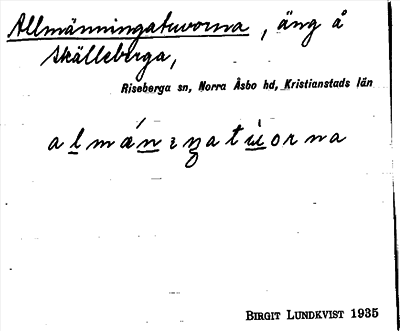 Allmänningatuvorna, äng å
Skälleberga,
Riseberga sn, Norra Åsbo hd, Kristianstads län
almánıŋatùorna
BIRGIT LUNDKVIST 1935